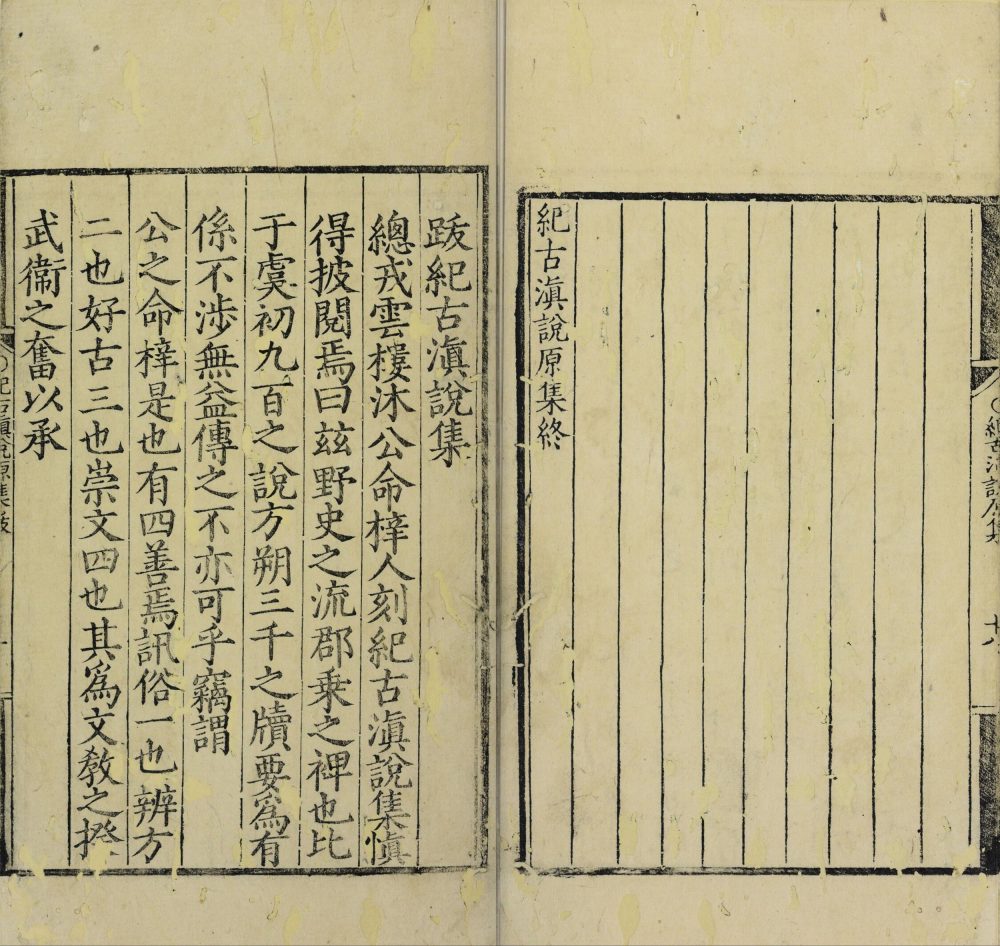 紀古滇說原集
紀古滇說原集終
跋紀古滇說集
總戎雲樓沐公命梓人刻紀古滇說集慎
得披閱焉曰茲野史之流郡乗之裨也比
于虞初九百之說方朔三千之牘要爲有
係不涉無益傳之不亦可乎竊謂
公之命梓是也有四善焉訊俗一也辨方
二也好古三也崇文四也其爲文教之揆
武衞之奮以承
紀古滇說原集跋